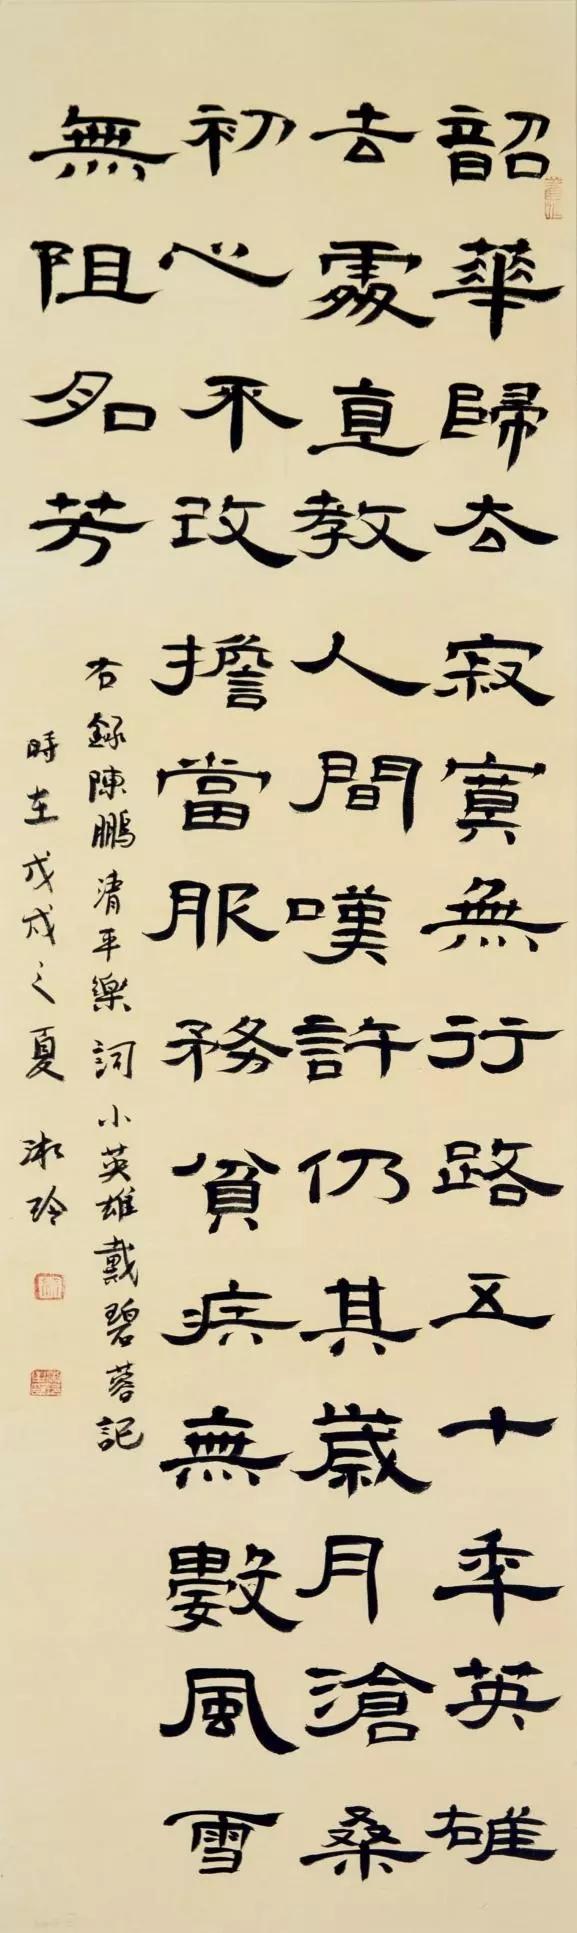 韶華歸去寂寞無行路五十年英雄
去處直教人間嘆許仍其歲月滄桑
初心不改擔當服務貧疾無數風雪
無阻名芳
右録陳鵬清平樂詞小英雄戴碧蓉記
時在戊戌之夏淑玲